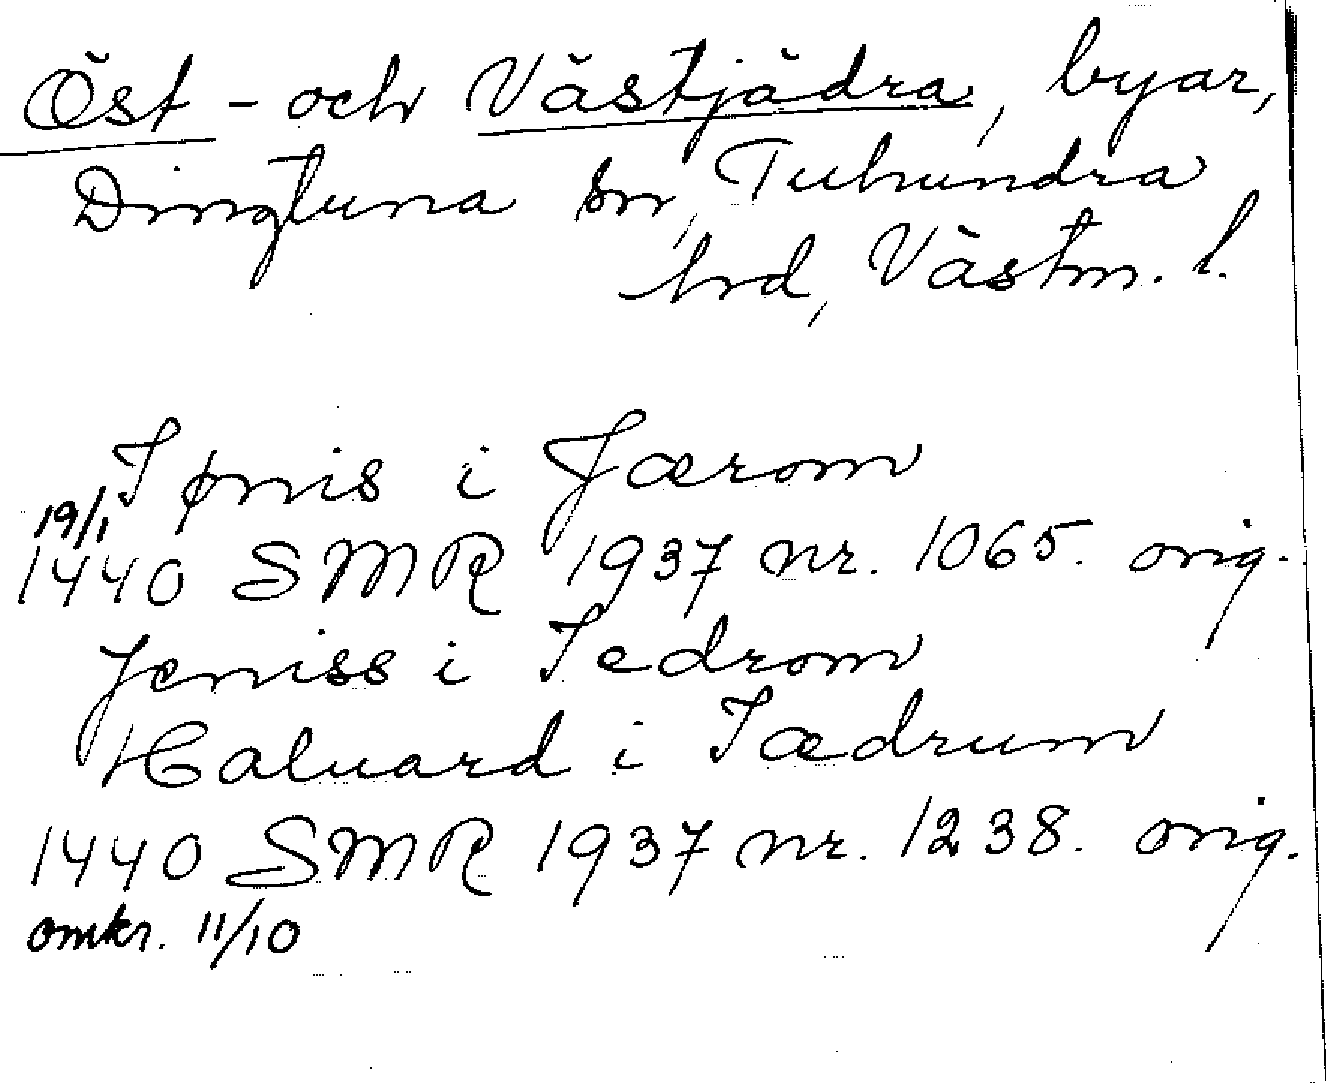 Öst- och Västjädra, byar,
Dingtuna sn, Tuhundra
hrd, Västm. l.
Iønis i Jærom
19/1
1440 SMR 1937 nr. 1065. orig.
Jeniss i Iedrom
Haluard i Iædrum
1440 SMR 1937 nr. 1238. orig.
omkr. 11/10